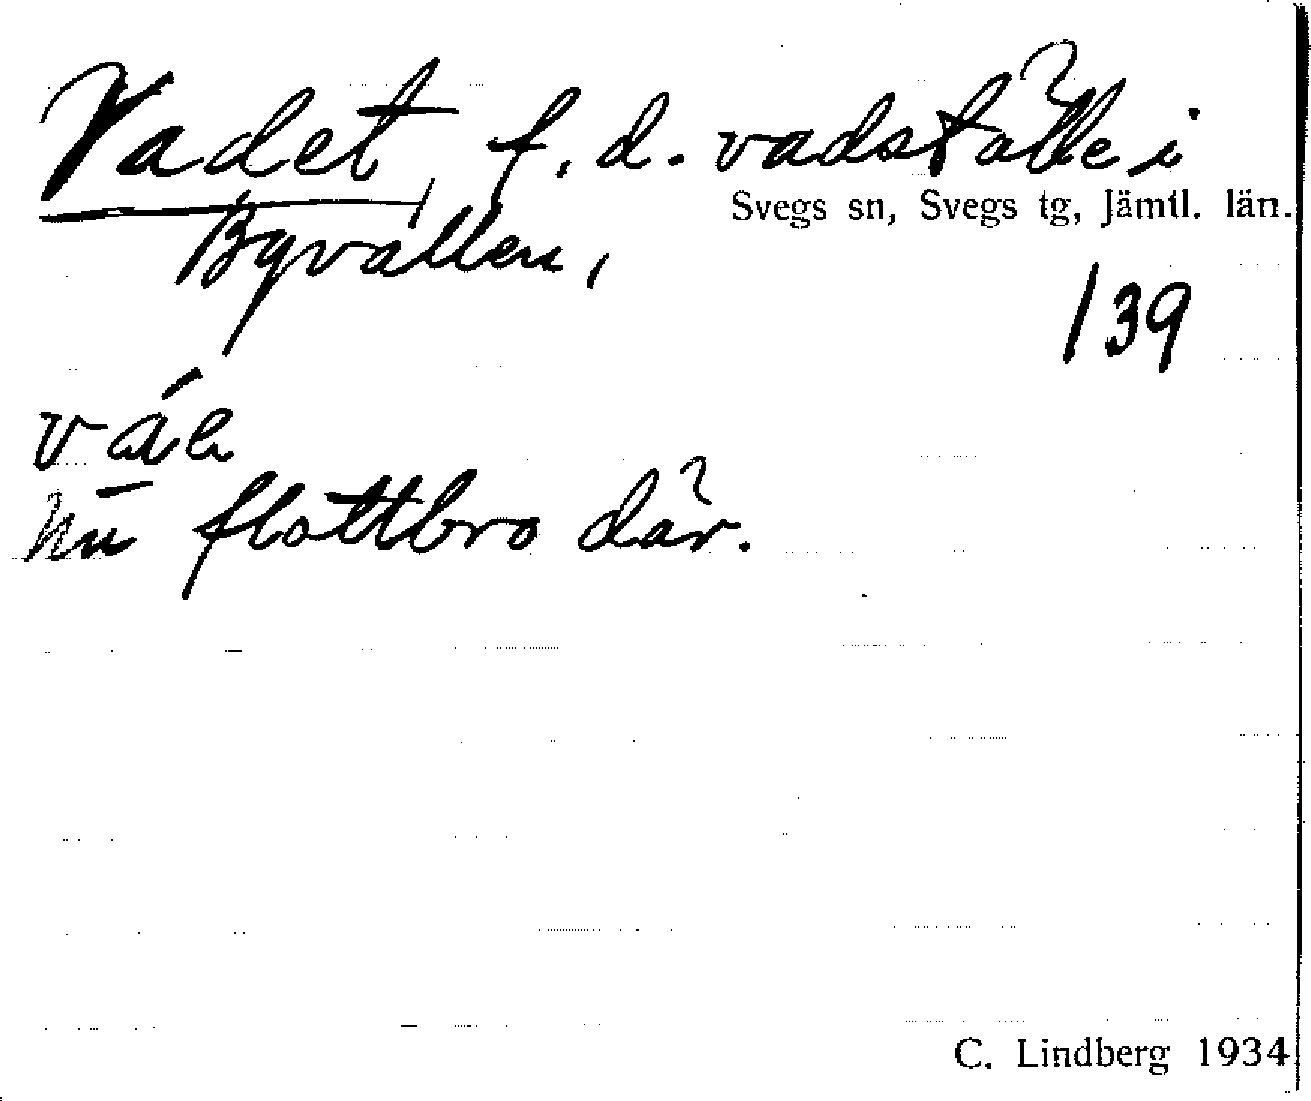 Vadet, f. d. vadställe i
Svegs sn, Svegs tg, Jämtl. län.
Byvallen,
139
váe
nu flottbro där.
C. Lindberg 1934